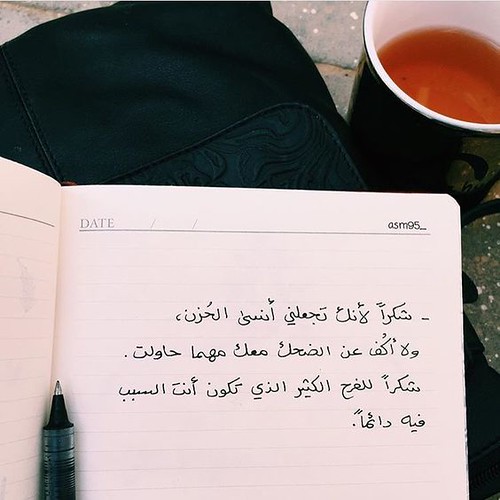 DATE / /
asm95_
- شكراً لأنك تجعلني أنسى الحُزن،
ولا أكُف عن الضحك معك مهما حاولت.
شكراً للفرح الكثير الذي تكون أنت السبب
فيه دائماً.